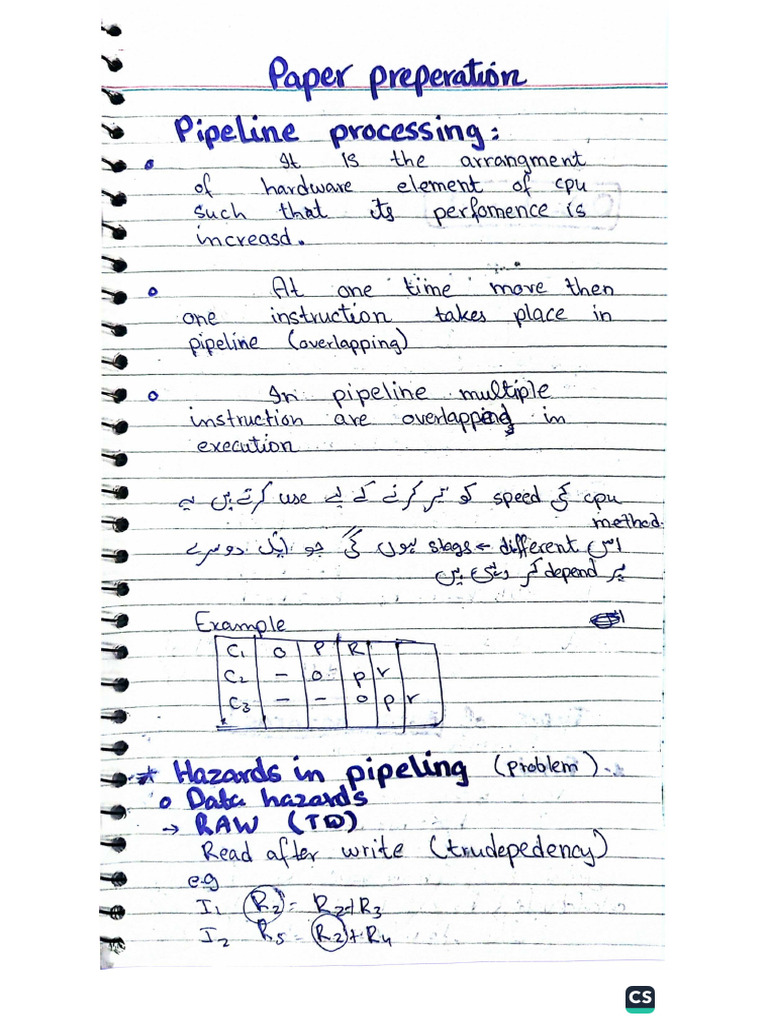 Paper preperation
Pipeline processing:
It is the arrangment
of hardware element of cpu
such that its perfomence is
increasd.
At one time more then
one instruction takes place in
pipeline (overlapping)
In pipeline multiple
instruction are overlapping in
execution
cpu کی speed کو تیز کرنے کے لیے use کرتے ہیں یہ
method.
اس different stags ہوں گی جو ایک دوسرے
پر depend کر رہی ہیں
Example
C1 O P R
C2 - o p r
C3 - - o p r
* Hazards in pipeling (problem).
o Data hazards
→ RAW (TD)
Read after write (trudepedency)
e.g
I1 R2 = R2+R3
I2 R5 = R2+R4
CS